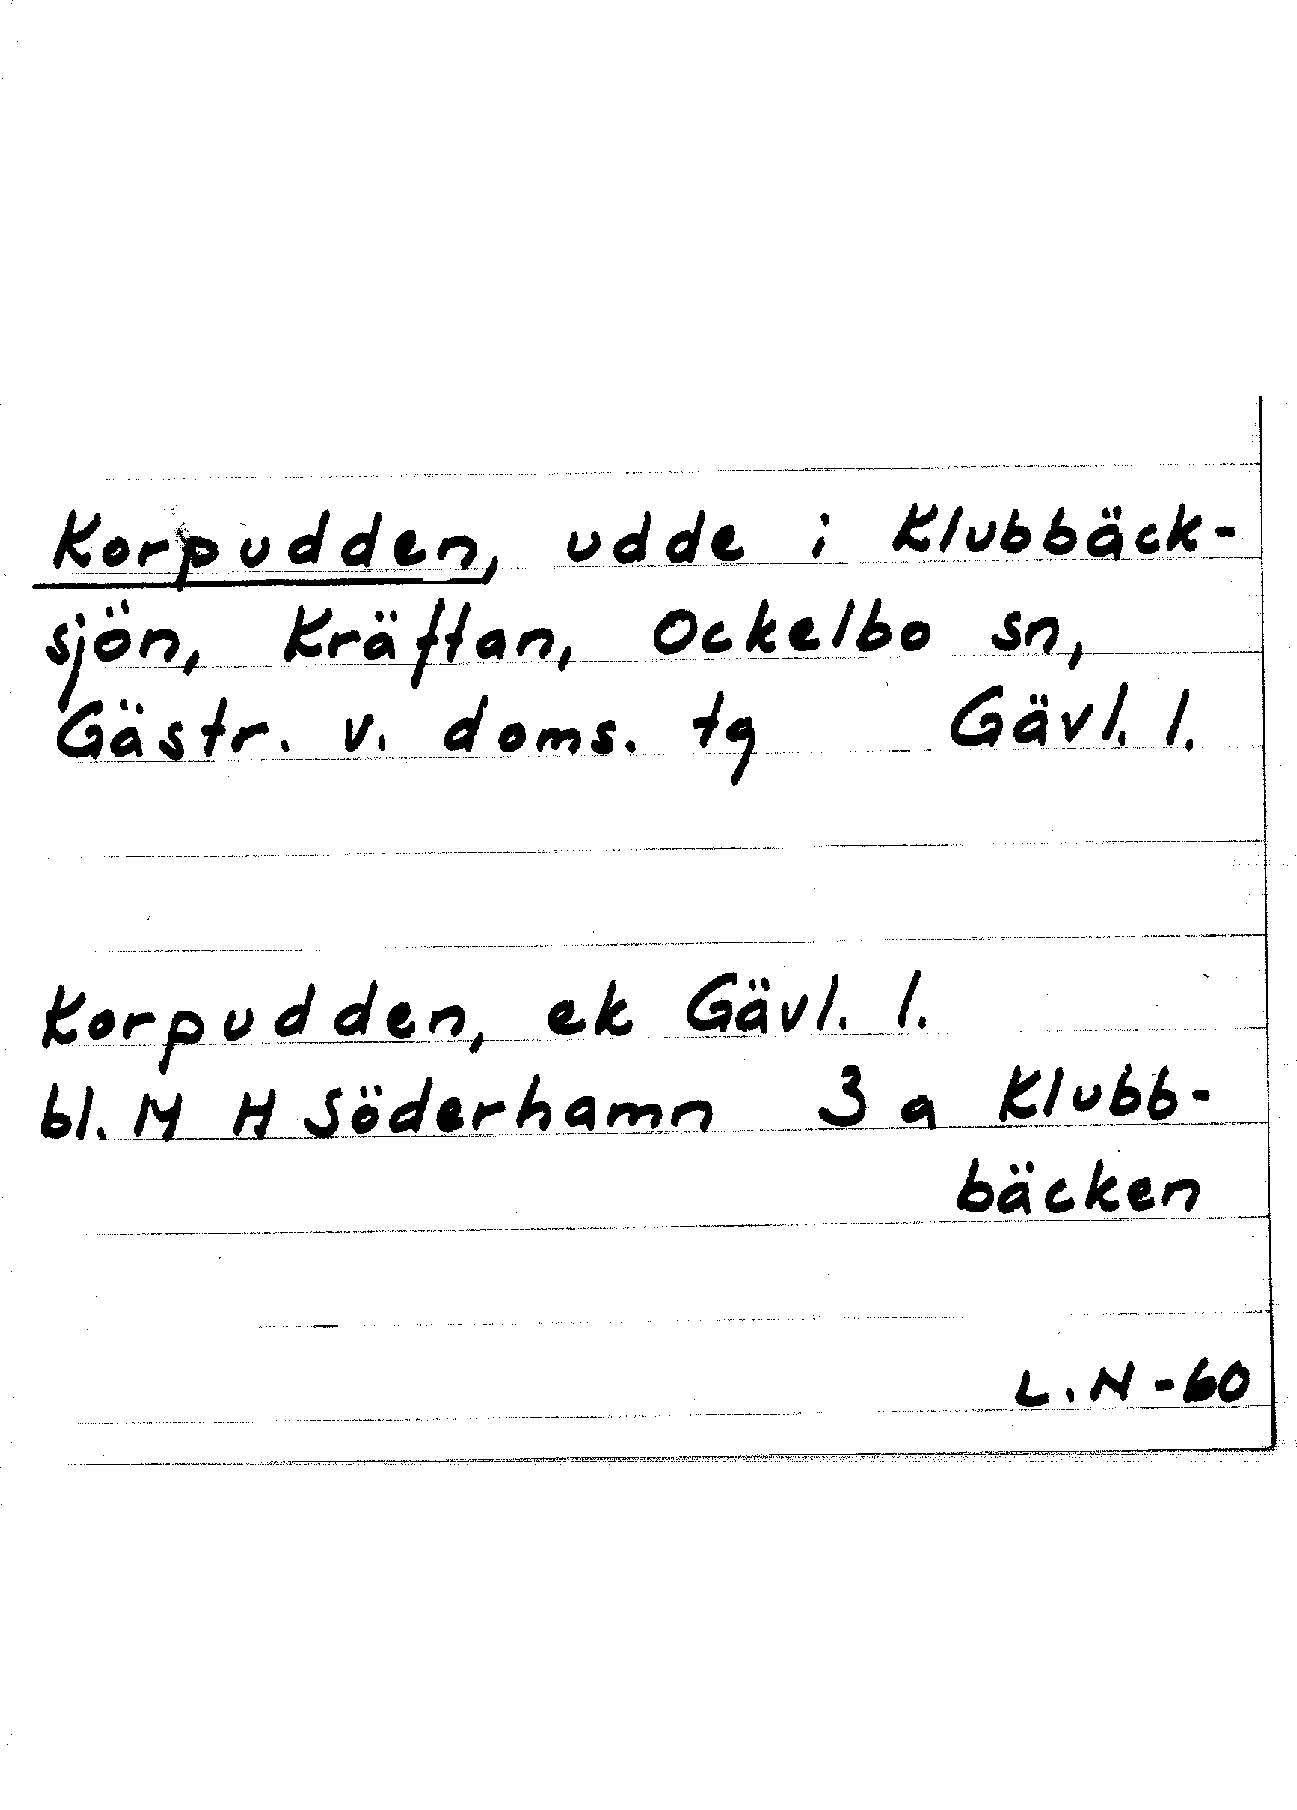 Korpudden, udde i Klubbäck-
sjön, Kräftan, Ockelbo sn,
Gästr. v. doms. tg Gävl. l.
Korpudden, ek Gävl. l.
bl. M H Söderhamn 3 a Klubb-
bäcken
L. N - 60